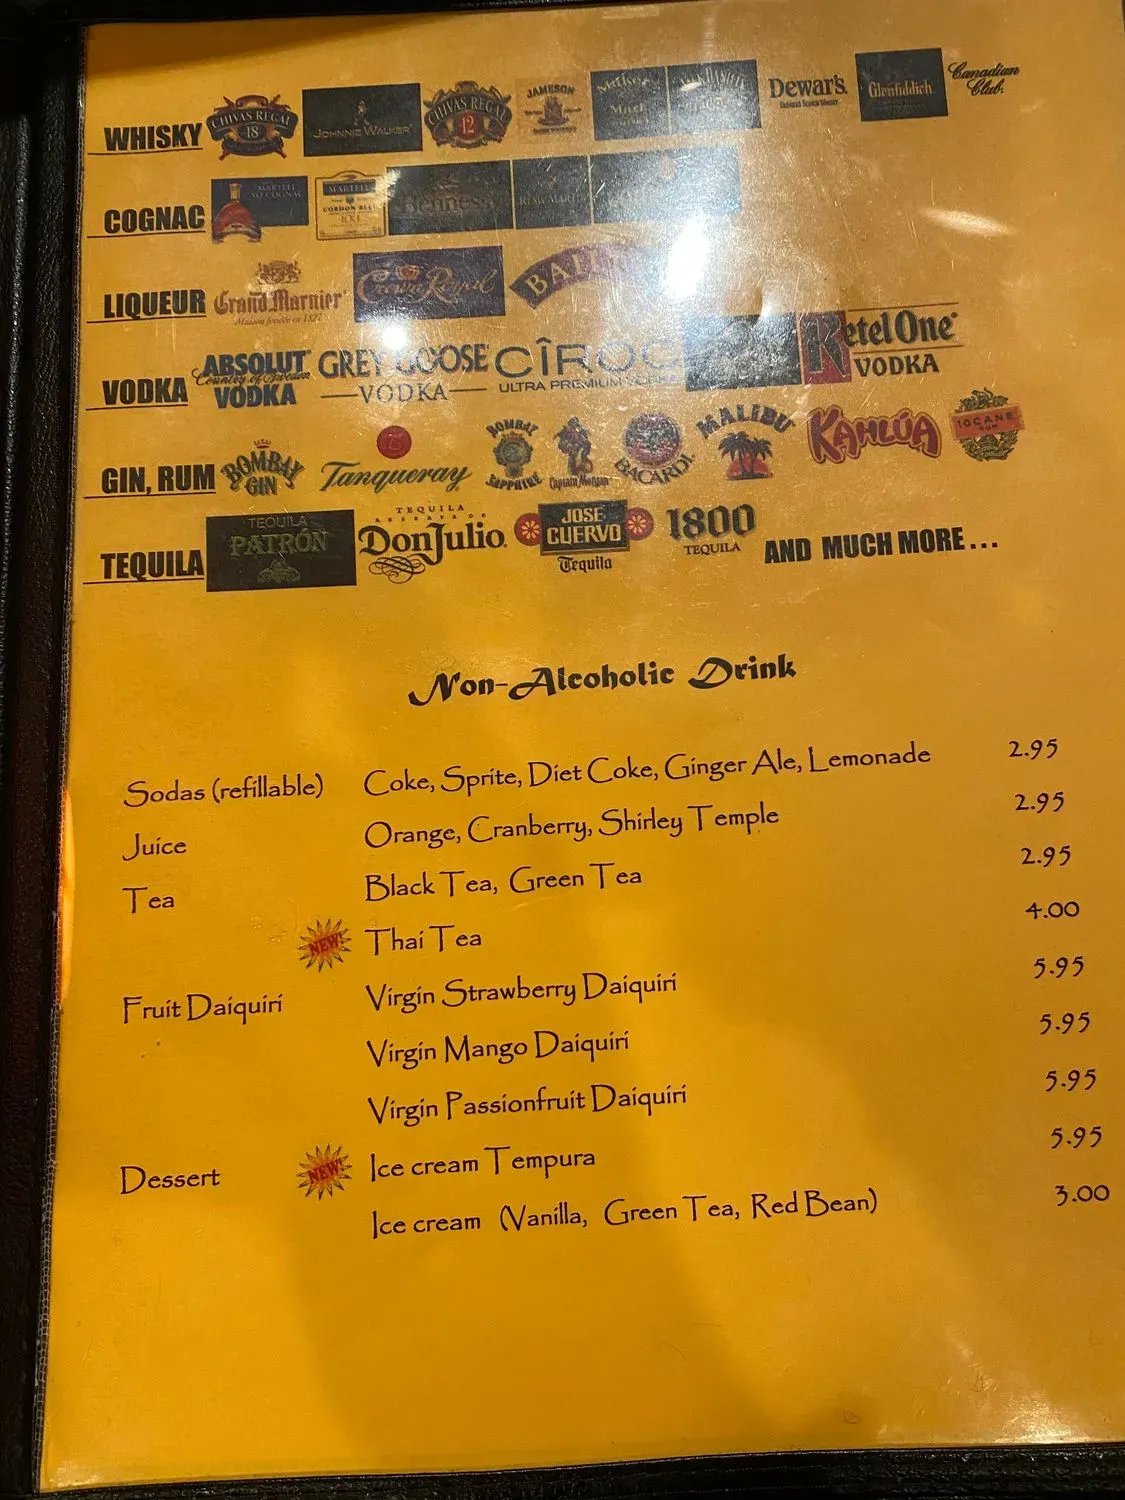 WHISKY CHIVAS REGAL 18 JOHNNIE WALKER CHIVAS REGAL 12 JAMESON Maker's Mark JACK DANIEL'S Dewar's Glenfiddich Canadian Club.
COGNAC MARTELL XO COGNAC MARTELL CORDON BLEU Hennessy RÉMY MARTIN
LIQUEUR Grand Marnier Maison fondée en 1827 Crown Royal
VODKA ABSOLUT Country of Sweden VODKA GREY GOOSE VODKA CÎROC ULTRA PREMIUM VODKA Ketel One VODKA
GIN, RUM BOMBAY GIN Tanqueray BOMBAY SAPPHIRE Captain Morgan BACARDI MALIBU KAHLÚA 10 CANE RUM
TEQUILA TEQUILA PATRÓN TEQUILA RESERVA DE Don Julio. JOSE CUERVO Tequila 1800 TEQUILA AND MUCH MORE...
Non-Alcoholic Drink
Sodas (refillable) Coke, Sprite, Diet Coke, Ginger Ale, Lemonade 2.95
Juice Orange, Cranberry, Shirley Temple 2.95
Tea Black Tea, Green Tea 2.95
NEW! Thai Tea 4.00
Fruit Daiquiri Virgin Strawberry Daiquiri 5.95
Virgin Mango Daiquiri 5.95
Virgin Passionfruit Daiquiri 5.95
Dessert NEW! Ice cream Tempura 5.95
Ice cream (Vanilla, Green Tea, Red Bean) 3.00